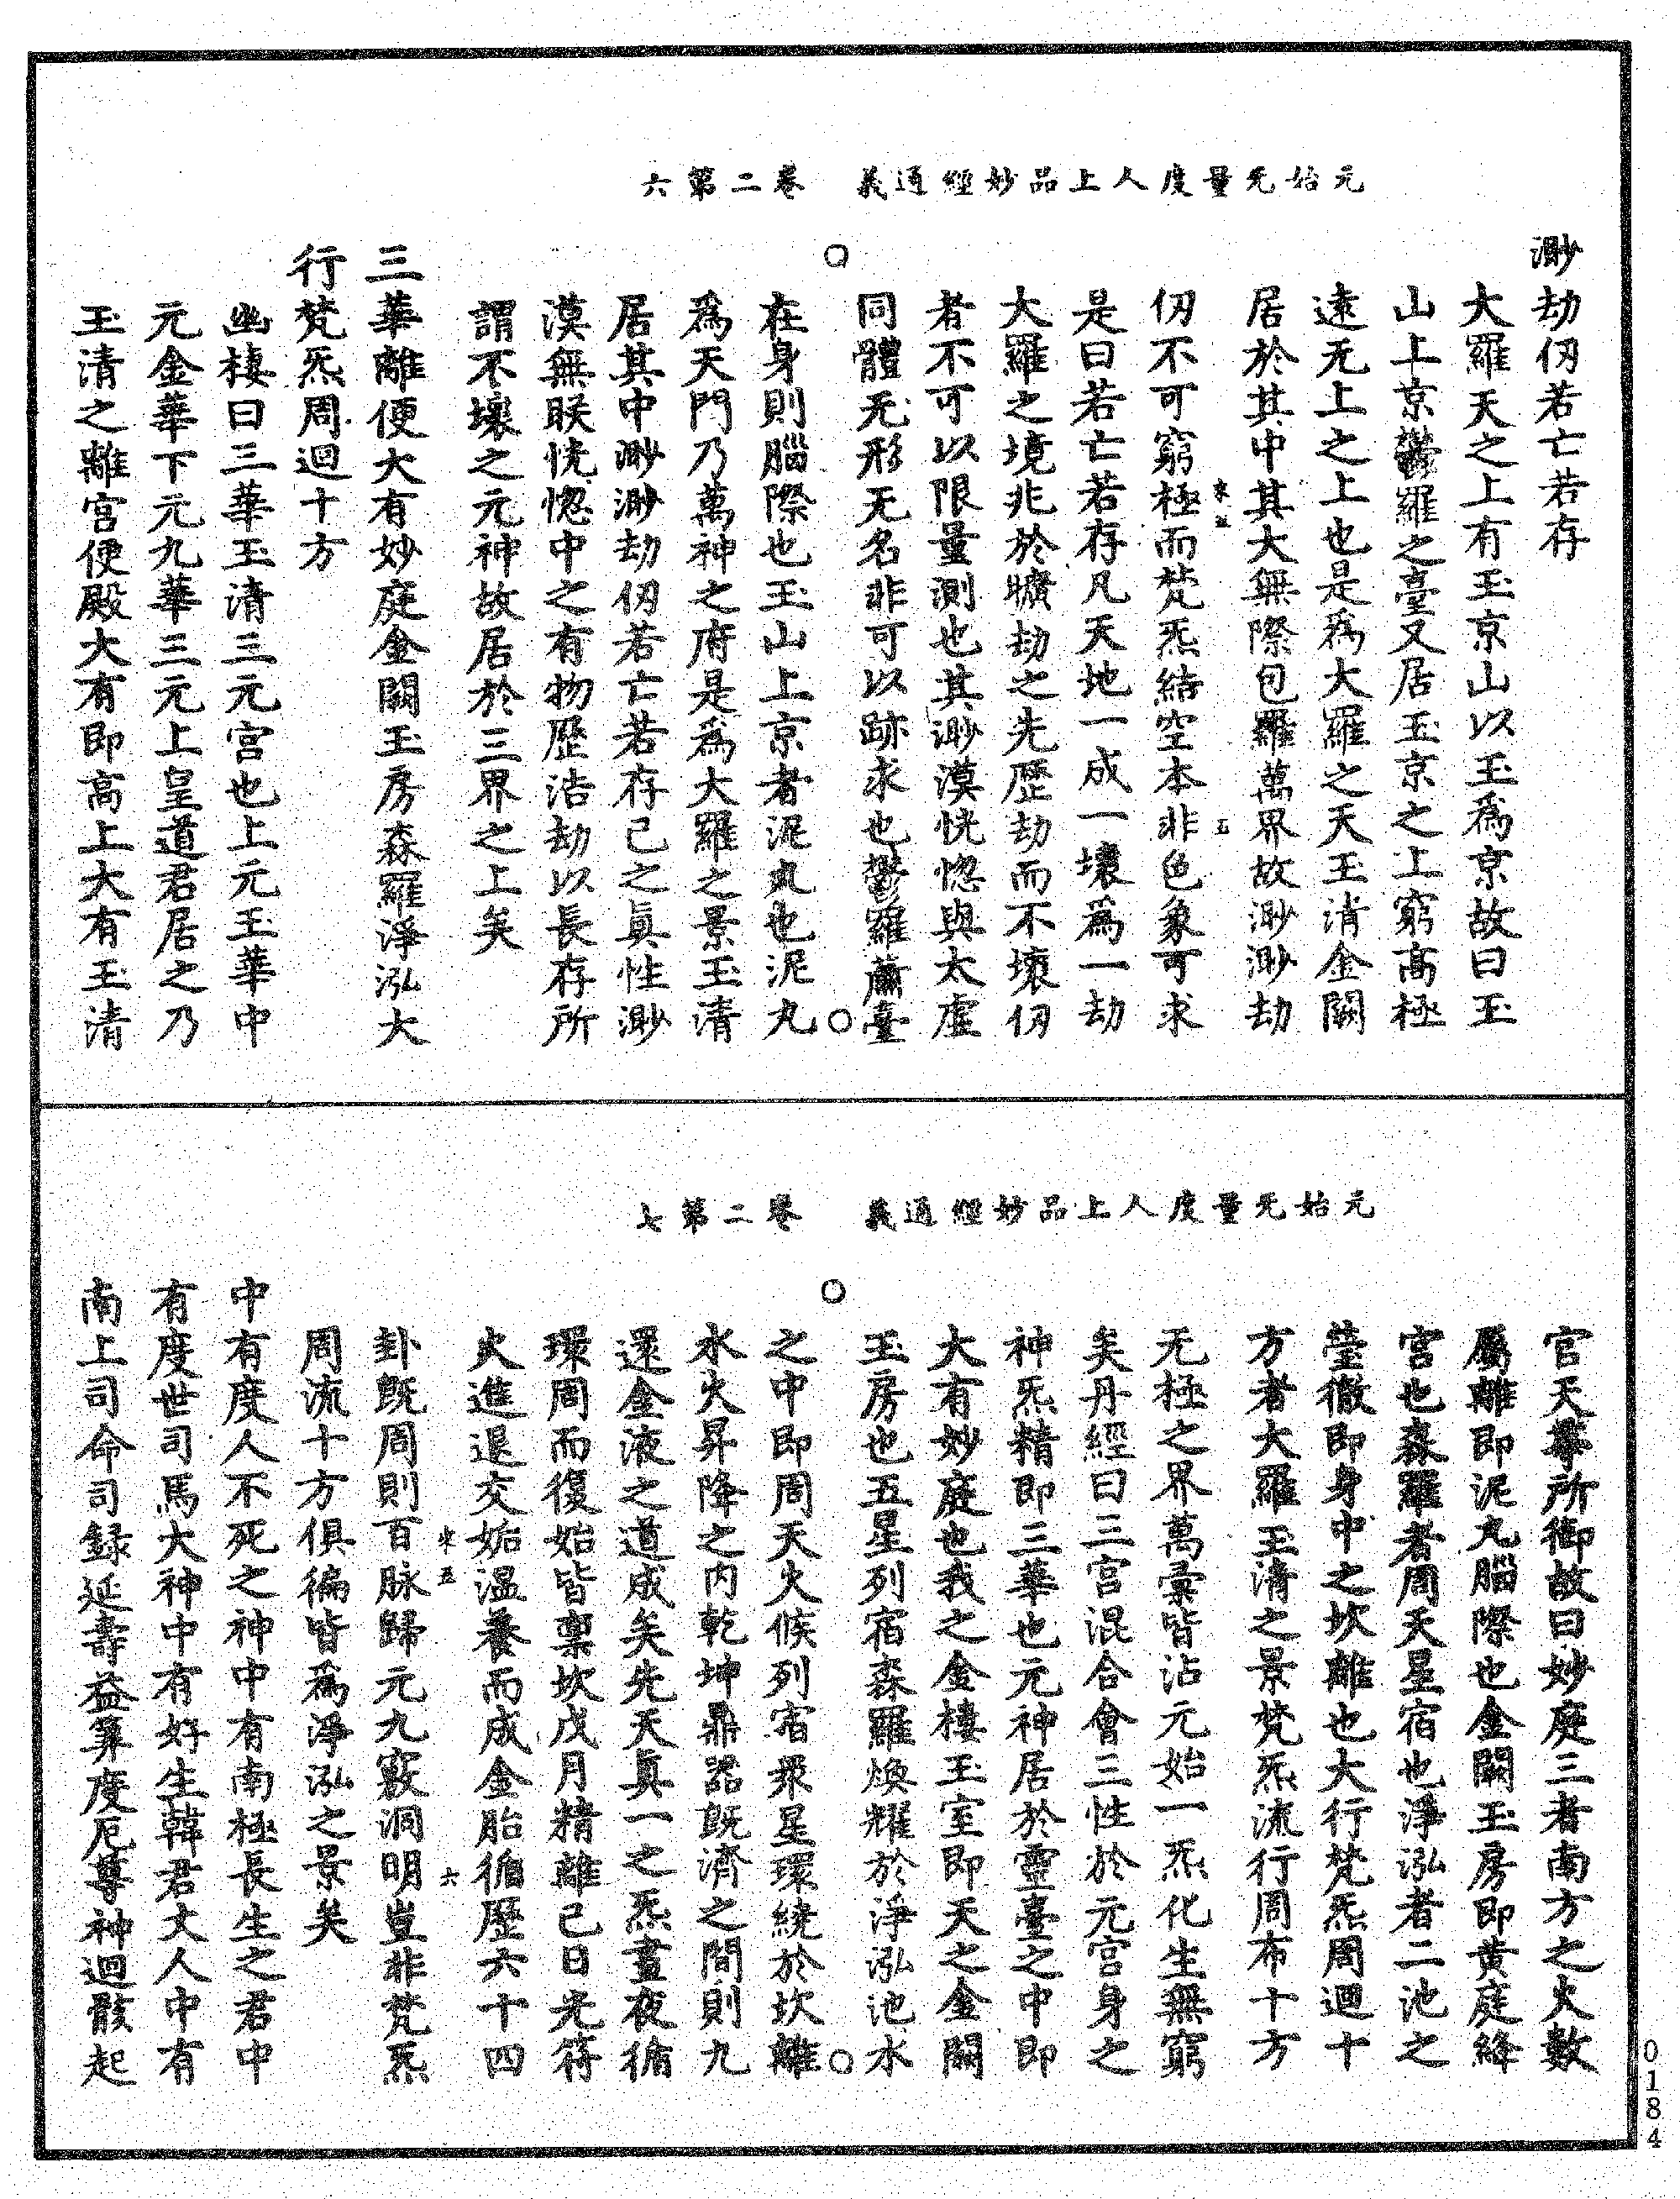 元始无量度人上品妙經通義　卷二第六
渺劫仞若亡若存
大羅天之上有玉京山以玉爲京故曰玉
山上京鬱羅之臺又居玉京之上窮高極
遠无上之上也是爲大羅之天玉清金闕
居於其中其大無際包羅萬界故渺渺劫
來五　五
仞不可窮極而梵炁結空本非色象可求
是曰若亡若存凡天地一成一壞爲一劫
大羅之境非於曠劫之先歷劫而不壞仞
者不可以限量測也其渺漠恍惚與太虛
同體无形无名非可以跡求也鬱羅蕭臺
在身則腦際也玉山上京者泥丸也泥丸
爲天門乃萬神之府是爲大羅之景玉清
居其中渺渺劫仞若亡若存己之眞性渺
漠無眹恍惚中之有物歷沾劫以長存所
謂不壞之元神故居於三界之上矣
三華離便大有妙庭金闕玉房森羅淨泓大
行梵炁周迴十方
幽棲曰三華玉清三元宮也上元玉華中
元金華下元九華三元上皇道君居之乃
玉清之離宮便殿大有即高上大有玉清
元始无量度人上品妙經通義　卷二第七
官天尊所御故曰妙庭三者南方之火數
屬離即泥丸腦際也金闕玉房即黃庭絳
宮也森羅者周天星宿也淨泓者二池之
瑩徹即身中之坎離也大行梵炁周迴十
方者大羅玉清之景梵炁流行周布十方
无極之界萬彙皆沾元始一炁化生無窮
矣丹經曰三宮混合會三性於元宮身之
神炁精即三華也元神居於靈臺之中即
大有妙庭也我之金樓玉室即天之金闕
玉房也五星列宿森羅煥耀於淨泓池水
之中即周天火候列宿衆星環繞於坎離
水火昇降之内乾坤鼎器既濟之間則九
還金液之道成矣先天眞一之炁晝夜循
環周而復始皆稟坎戊月精離己日光符
火進退交姤溫養而成金胎循歷六十四
來五　六
卦既周則百脉歸元九竅洞明豈非梵炁
周流十方俱徧皆爲淨泓之景矣
中有度人不死之神中有南極長生之君中
有度世司馬大神中有好生韓君丈人中有
南上司命司録延壽益筭度厄尊神迴骸起
0184